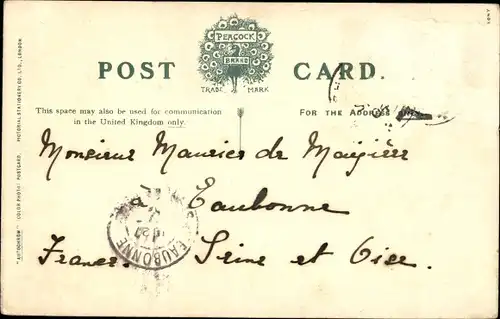 PEACOCK
BRAND
TRADE MARK
POST CARD.
This space may also be used for communication
in the United Kingdom only.
FOR THE ADDRESS ONLY
"AUTOCHROM" (COLOR PHOTO) POSTCARD. PICTORIAL STATIONERY CO. LTD., LONDON.
Monsieur Maurice de
à Eaubonne
France. Seine et Oise.
EAUBONNE